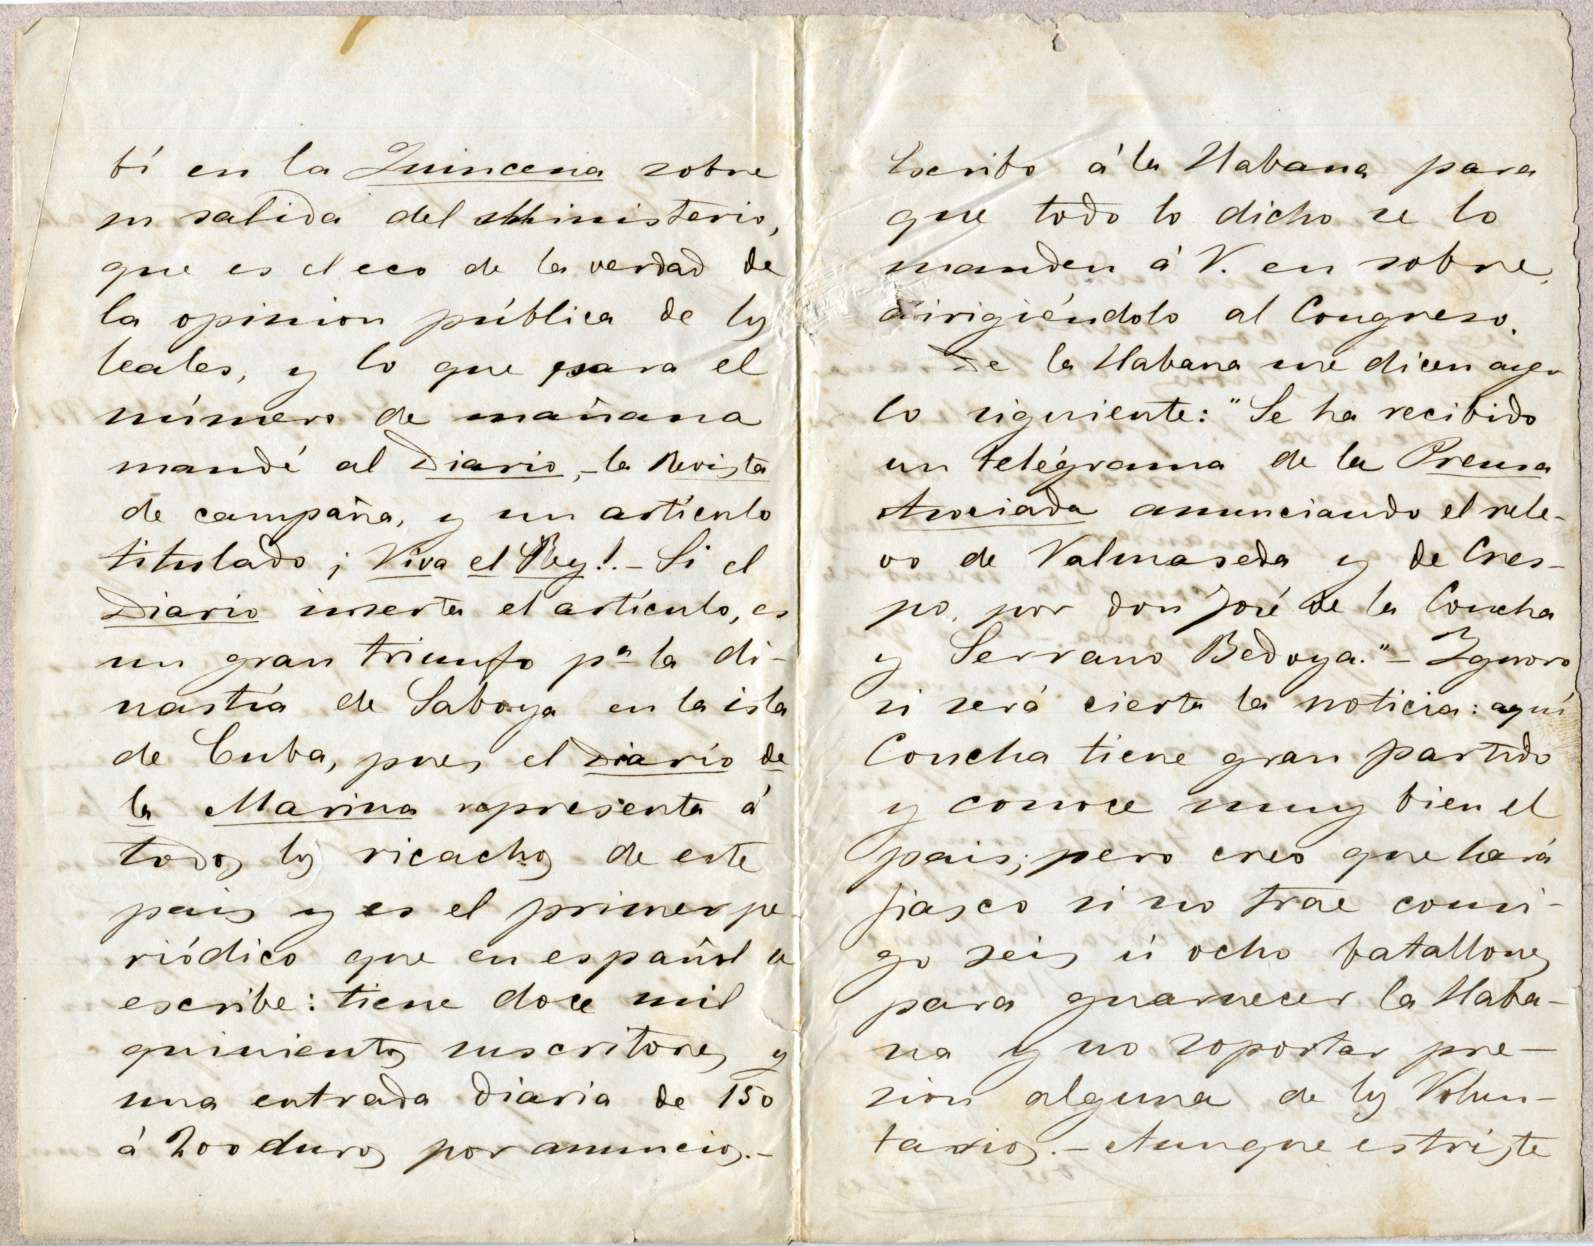 bí en la Quincena sobre
su salida del Ministerio,
que es el eco de la verdad de
la opinion pública de los
leales, y lo que para el
número de mañana
mandé al Diario,-la Revista
de campaña, y un artículo
titulado ¡Viva el Rey!.- Si el
Diario inserta el artículo, es
un gran triunfo pª la di-
nastía de Saboya en la isla
de Cuba, pues el Diario de
la Marina representa á
todos los ricachos de este
pais y es el primer pe-
riódico que en español se
escribe: tiene doce mil
quinientos suscritores y
una entrada diaria de 150
á 200 duros por anuncios.-
Escribo á la Habana para
que todo lo dicho se lo
manden á V. en sobre,
dirigiéndolo al Congreso.
De la Habana me dicen ayer
lo siguiente: "Se ha recibido
un telégrama de la Prensa
Asociada anunciando el rele-
vo de Valmaseda y de Cres-
po, por don José de la Concha
y Serrano Bedoya."- Ignoro
si será cierta la noticia: aquí
Concha tiene gran partido
y conoce muy bien el
pais; pero creo que hará
fiasco si no trae consi-
go seis ú ocho batallones
para guarnecer la Haba-
na y no soportar pre-
sion alguna de los Volun-
tarios.- Aunque es triste